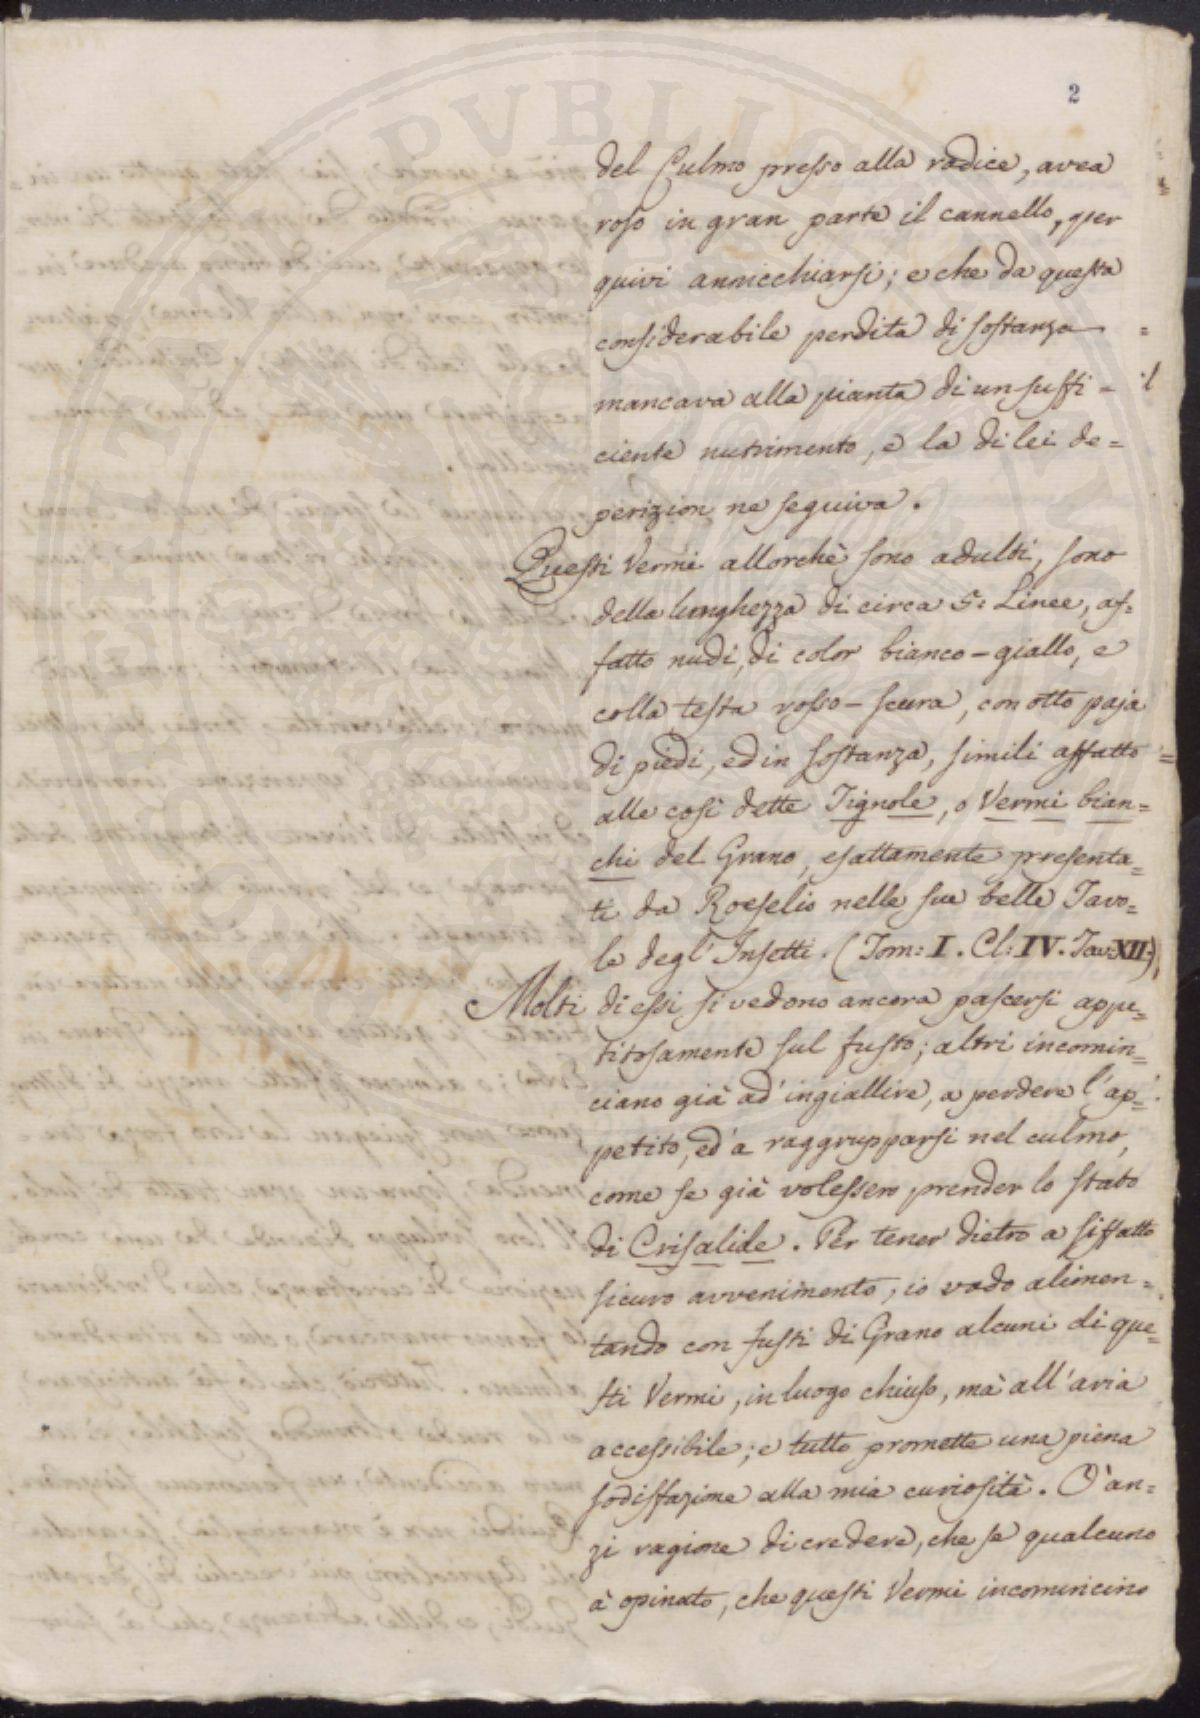 2
del Culmo presso alla radice, avea
roso in gran parte il cannello, per
quivi annicchiarsi; e che da questa
considerabile perdita di sostanza
mancava alla pianta di un suffi=
ciente nutrimento, e la di lei de=
perizion ne seguiva.
Questi Vermi allorchè sono adulti, sono
della lunghezza di circa 5: Linee, af=
fatto nudi, di color bianco-giallo, e
colla testa rosso-scura, con otto paja
di piedi, ed in sostanza, simili affatto
alle così dette Tignole, o Vermi bian=
chi del Grano, esattamente presenta=
ti da Roeselio nelle sue belle Tavo=
le degl' Insetti. (Tom: I. Cl: IV. Tav: XII:)
Molti di essi si vedono ancora pascersi appe=
titosamente sul fusto; altri incomin=
ciano già ad' ingiallire, a perdere l'ap=
petito, ed' a raggrupparsi nel culmo,
come se già volessero prender lo stato
di Crisalide. Per tener dietro a siffatto
sicuro avvenimento, io vado alimen=
tando con fusti di Grano alcuni di que=
sti Vermi, in luogo chiuso, mà all'aria
accessibile; e tutto promette una piena
sodisfazione alla mia curiosità. O' an=
zi ragione di credere, che se qualcuno
à opinato, che questi Vermi incomincino